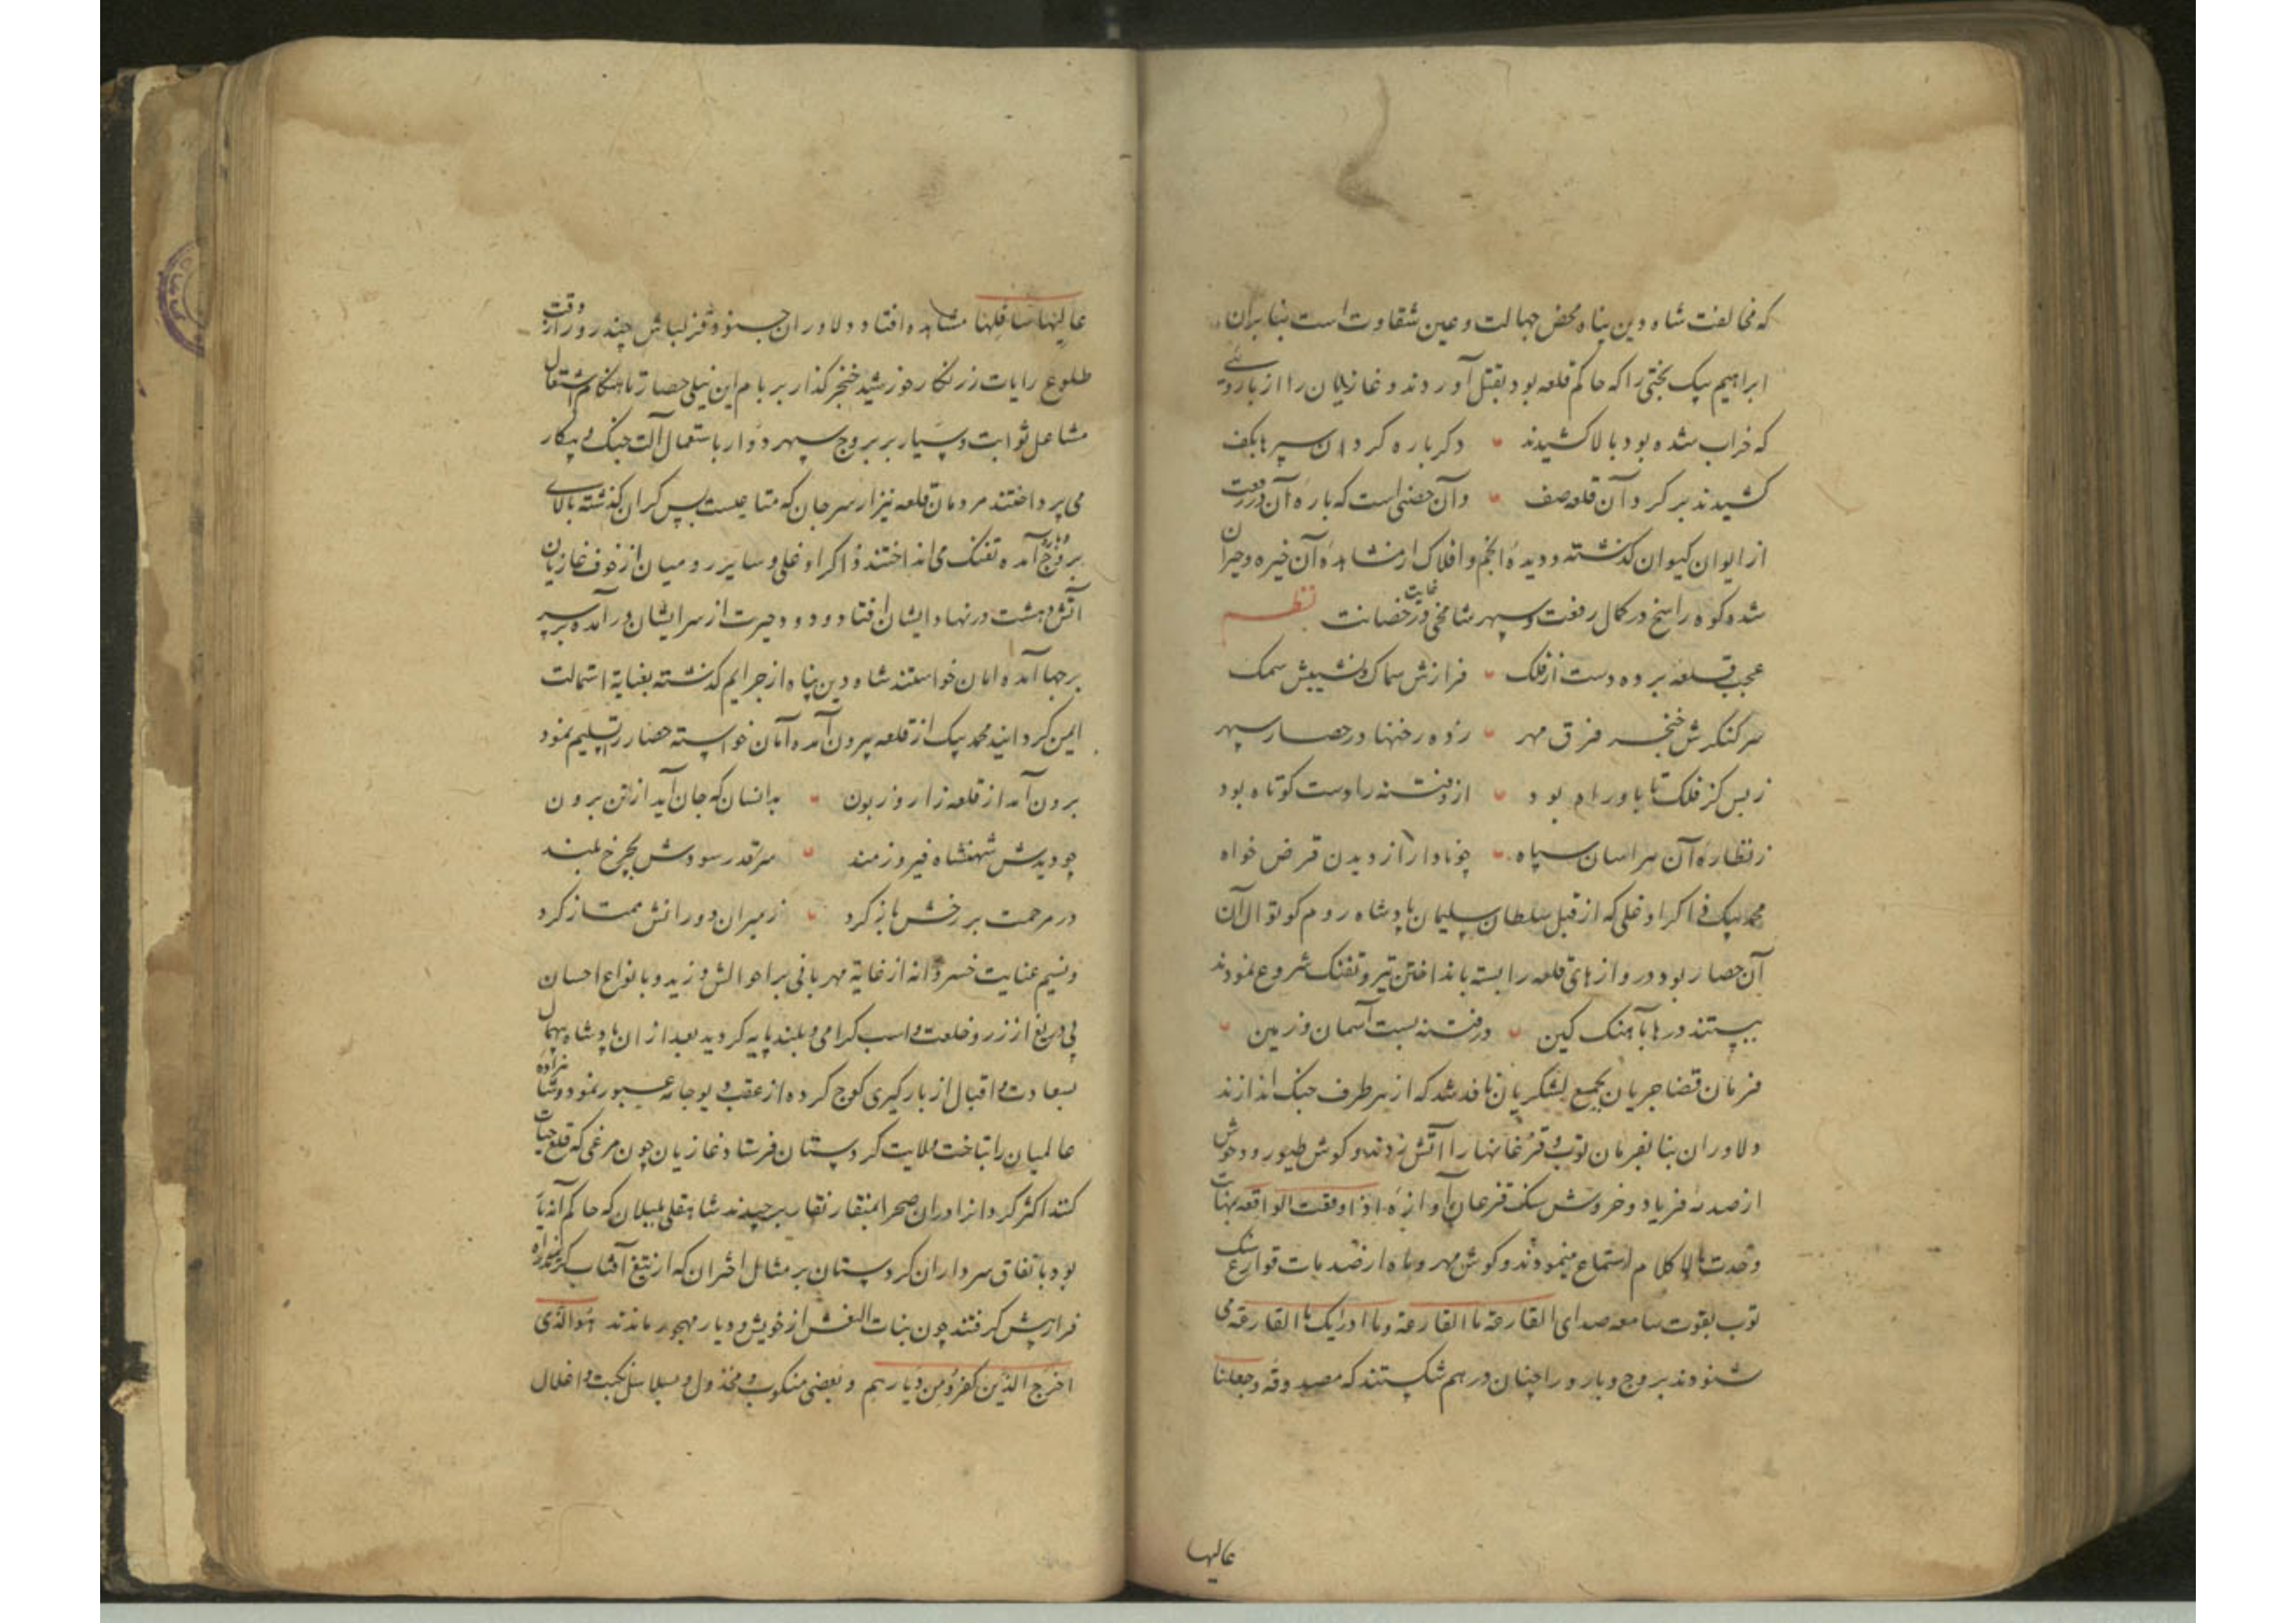 که مخالفت شاه دین پناه محض جهالت و عین شقاوت است بنابران
ابراهیم بیک بختی را که حاکم قلعه بود بقتل آوردند و غازیان را از باروئی
که خراب شده بود بالا کشیدند دکرباره کردان سپرها بکف
کشیدند بر کرد آن قلعه صف وآن حصنی است که باره آن در رفعت
از ایوان کیوان کذشته و دیده انجم و افلاک از مشاهده آن خیره و حیران
شده کوه راسخ در کمال رفعت و سپهر شامخی در غایت حصانت نظم
عجب قلعه برده دست از فلک فرازش سماک و نشیبش سمک
سر کنکرش خنجر فرق مهر زده رخنها در حصار سپهر
ز بس کز فلک تا باو راه بود ازو فتنه را دست کوتاه بود
ز نظاره آن هراسان سپاه چو نادار از دیدن قرض خواه
محمد بیک ذاکر اوغلی که از قبل سلطان سلیمان پادشاه روم کوتوال آن
آن حصار بود دروازهای قلعه را بسته بانداختن تیر و تفنک شروع نمودند
ببستند درها بآهنک کین در فتنه بست آسمان و زمین
فرمان قضا جریان بجمیع لشکریان نافذ شد که از هر طرف جنک اندازند
دلاوران بنا بفرمان توب و قزغانها را آتش زدند و کوش طیور و وحوش
از صدمه فریاد و خروش سنک قزغان آوازه اذا وقعت الواقعه بنهایت
وحدت بالا کلام استماع مینمودند و کوش مهر و ماه از ضدمات قوارع سنک
توب بقوت سامعه صدای القارعة ما القارعة وما ادرایک ما القارعة می
شنودند بروج و بارو را چنان در هم شکستند که مصدوقه وجعلنا
عالیها
عالیها سافلها مشاهده افتاد و دلاوران جنود قزلباش چند روز از وقت
طلوع رایات زرنکار خورشید خنجر کذار بر بام این نیلی حصار تا هنکام اشتعال
مشاعل ثوابت و سیار بر بروج سپهر دوار باستعمال آلت جنک و پیکار
می پرداختند مردمان قلعه نیز از سر جان که متاعیست بس کران کذشته بالای
بروج و باره آمده تفنک می انداختند ذاکر اوغلی و سایر رومیان از خوف غازیان
آتش دهشت در نهاد ایشان افتاد و دود حیرت از سر ایشان در آمده بر سپر
برجها آمده امان خواستند شاه دین پناه از جرایم کذشته بغایة استمالت
ایمن کردانید محمد بیک از قلعه بیرون آمده امان خواسته حصار را تسلیم نمود
برون آمد از قلعه زار و زبون بدانسان که جان آید از تن برون
چو دیدش شهنشاه فیروزمند سر قدر سودش بچرخ بلند
در مرحمت بر رخش باز کرد ز میران دورانش ممتاز کرد
ونسیم عنایت خسروانه از غایة مهربانی بر احوالش وزید و بانواع احسان
بی دریغ از زر و خلعت و اسب کرامی و بلند پایه کردید بعد از ان پادشاه بیهمال
بسعادت و اقبال از بارکیری کوچ کرده از عقبه بوجامه عبور نمود و شاهزاده
عالمیان را بتاخت ولایت کردستان فرستاد غازیان چون مرغی که قلع حبات
کنند اکثر کردان را دران صحرا بمنقار نقار برچیدند شاهقلی بلیلان که حاکم آنها
بود باتفاق سرداران کردستان بر مثال اختران که از تیغ آفتاب کریزند راه
فرار پیش کرفتند چون بنات النعش از خویش و دیار مهجور ماندند هوالذی
اخرج الذین کفروا من دیارهم و بعضی منکوب و مخذول و بسلاسل نکبت و اغلال